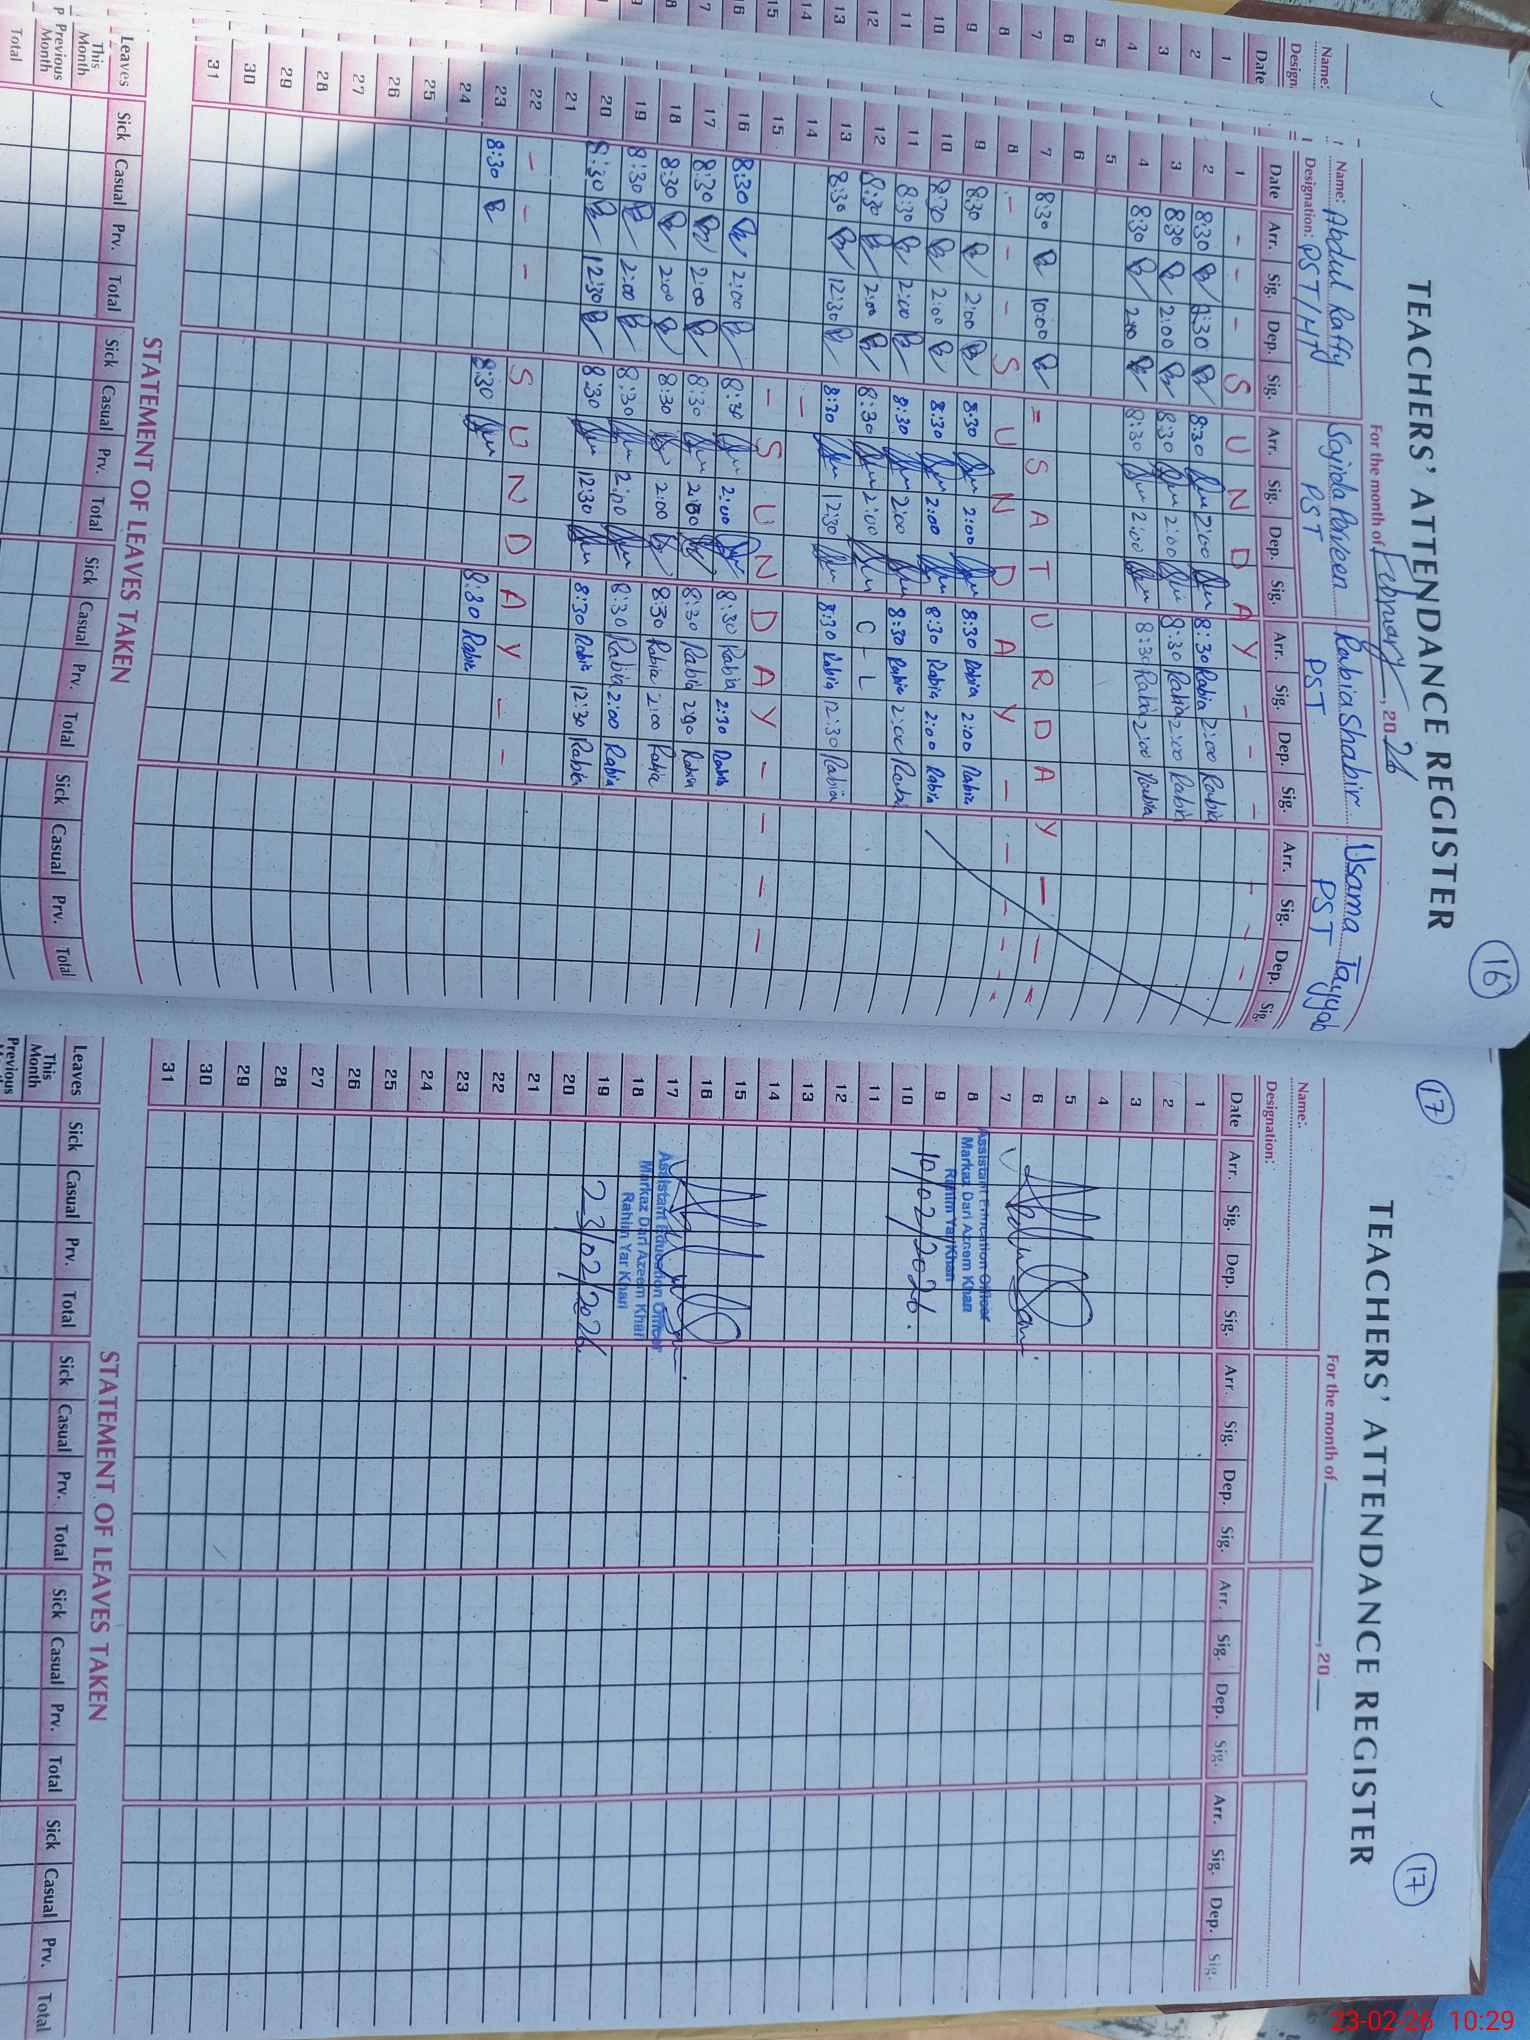 TEACHERS' ATTENDANCE REGISTER
16
For the month of February, 2026
Name: Abdul Raffy Sajida Perveen Rabia Shabir Usama Tayyab
Designation: PST/HT PST PST PST
Date Arr. Sig. Dep. Sig. Arr. Sig. Dep. Sig. Arr. Sig. Dep. Sig. Arr. Sig. Dep. Sig.
1 - - - S U N D A Y - - - - - -
2 8:30 2:30 8:30 2:00 8:30 Rabia 2:00 Rabia
3 8:30 2:00 8:30 2:00 8:30 Rabia 2:00 Rabia
4 8:30 2:00 8:30 2:00 8:30 Rabia 2:00 Rabia
5
6
7 8:30 10:00 = S A T U R D A Y - - =
8 - - - S U N D A Y - - - - -
9 8:30 2:00 8:30 2:00 8:30 Rabia 2:00 Rabia
10 8:30 2:00 8:30 2:00 8:30 Rabia 2:00 Rabia
11 8:30 2:00 8:30 2:00 8:30 Rabia 2:00 Rabia
12 8:30 2:00 8:30 2:00 C - L
13 8:30 12:30 8:30 12:30 8:30 Rabia 12:30 Rabia
14
15 - S U N D A Y - - - -
16 8:30 2:00 8:30 2:00 8:30 Rabia 2:30 Rabia
17 8:30 2:00 8:30 8:30 Rabia Rabia
18 8:30 2:00 8:30 2:00 8:30 Rabia 2:00 Rabia
19 8:30 2:00 8:30 2:00 8:30 Rabia 2:00 Rabia
20 8:30 12:30 8:30 12:30 8:30 Rabia 12:30 Rabia
21
22 - - - S U N D A Y - -
23 8:30 8:30 8:30 Rabia
24
25
26
27
28
29
30
31
STATEMENT OF LEAVES TAKEN
Leaves Sick Casual Prv. Total Sick Casual Prv. Total Sick Casual Prv. Total Sick Casual Prv. Total
This Month
Previous Month
Total
17
TEACHERS' ATTENDANCE REGISTER
17
For the month of , 20
Name:
Designation:
Date Arr. Sig. Dep. Sig. Arr. Sig. Dep. Sig. Arr. Sig. Dep. Sig. Arr. Sig. Dep. Sig.
1
2
3
4
5
6
7
8
9
10
11
12
13
14
15
16
17
18
19
20
21
22
23
24
25
26
27
28
29
30
31
Assistant Education Officer
Markaz Dari Azeem Khan
Rahim Yar Khan
10/02/2026.
Assistant Education Officer
Markaz Dari Azeem Khan
Rahim Yar Khan
23/02/2026
STATEMENT OF LEAVES TAKEN
Leaves Sick Casual Prv. Total Sick Casual Prv. Total Sick Casual Prv. Total Sick Casual Prv. Total
This Month
Previous
23-02-26 10:29